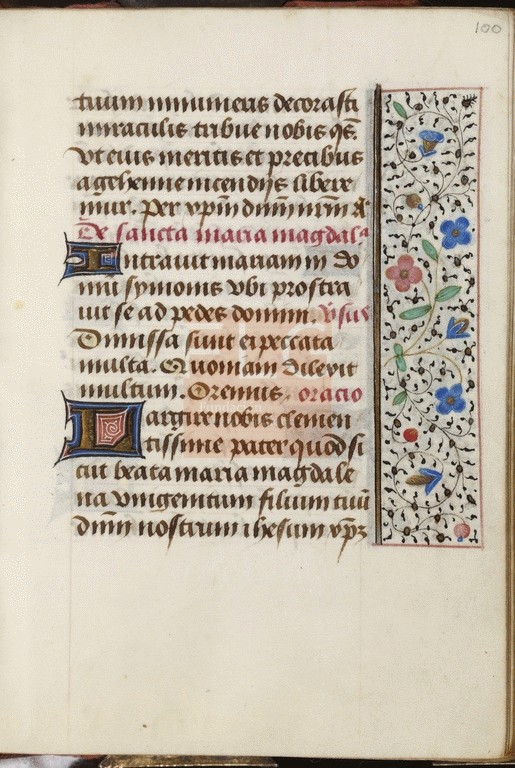 100
tuum innumeris decorasti
miraculis tribue nobis qs̄
vt eius meritis et precibus
a gehenne incendijs libere
mur. per xp̄m dn̄m nr̄m a
De sancta maria magdalᵃ
Intrauit mariam in do
mū symonis vbi prostra
uit se ad pedes domini. v̄sus
Dimissa sunt ei peccata
multa. Quoniam dilexit
multum. Oremus. oracio
Largire nobis clemen
tissime pater quod si
cut beata maria magdale
na vnigenitum filium tuū
dn̄m nostrum ihesum xp̄z